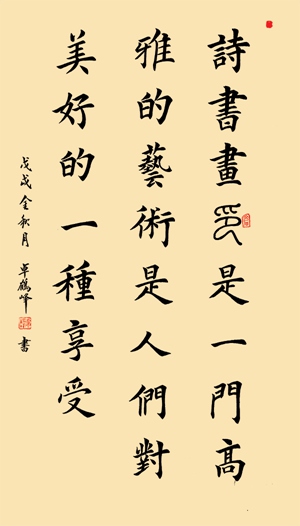 詩書畫印是一門高
雅的藝術是人們對
美好的一種享受
戊戌金秋月 卓鶴峰 書